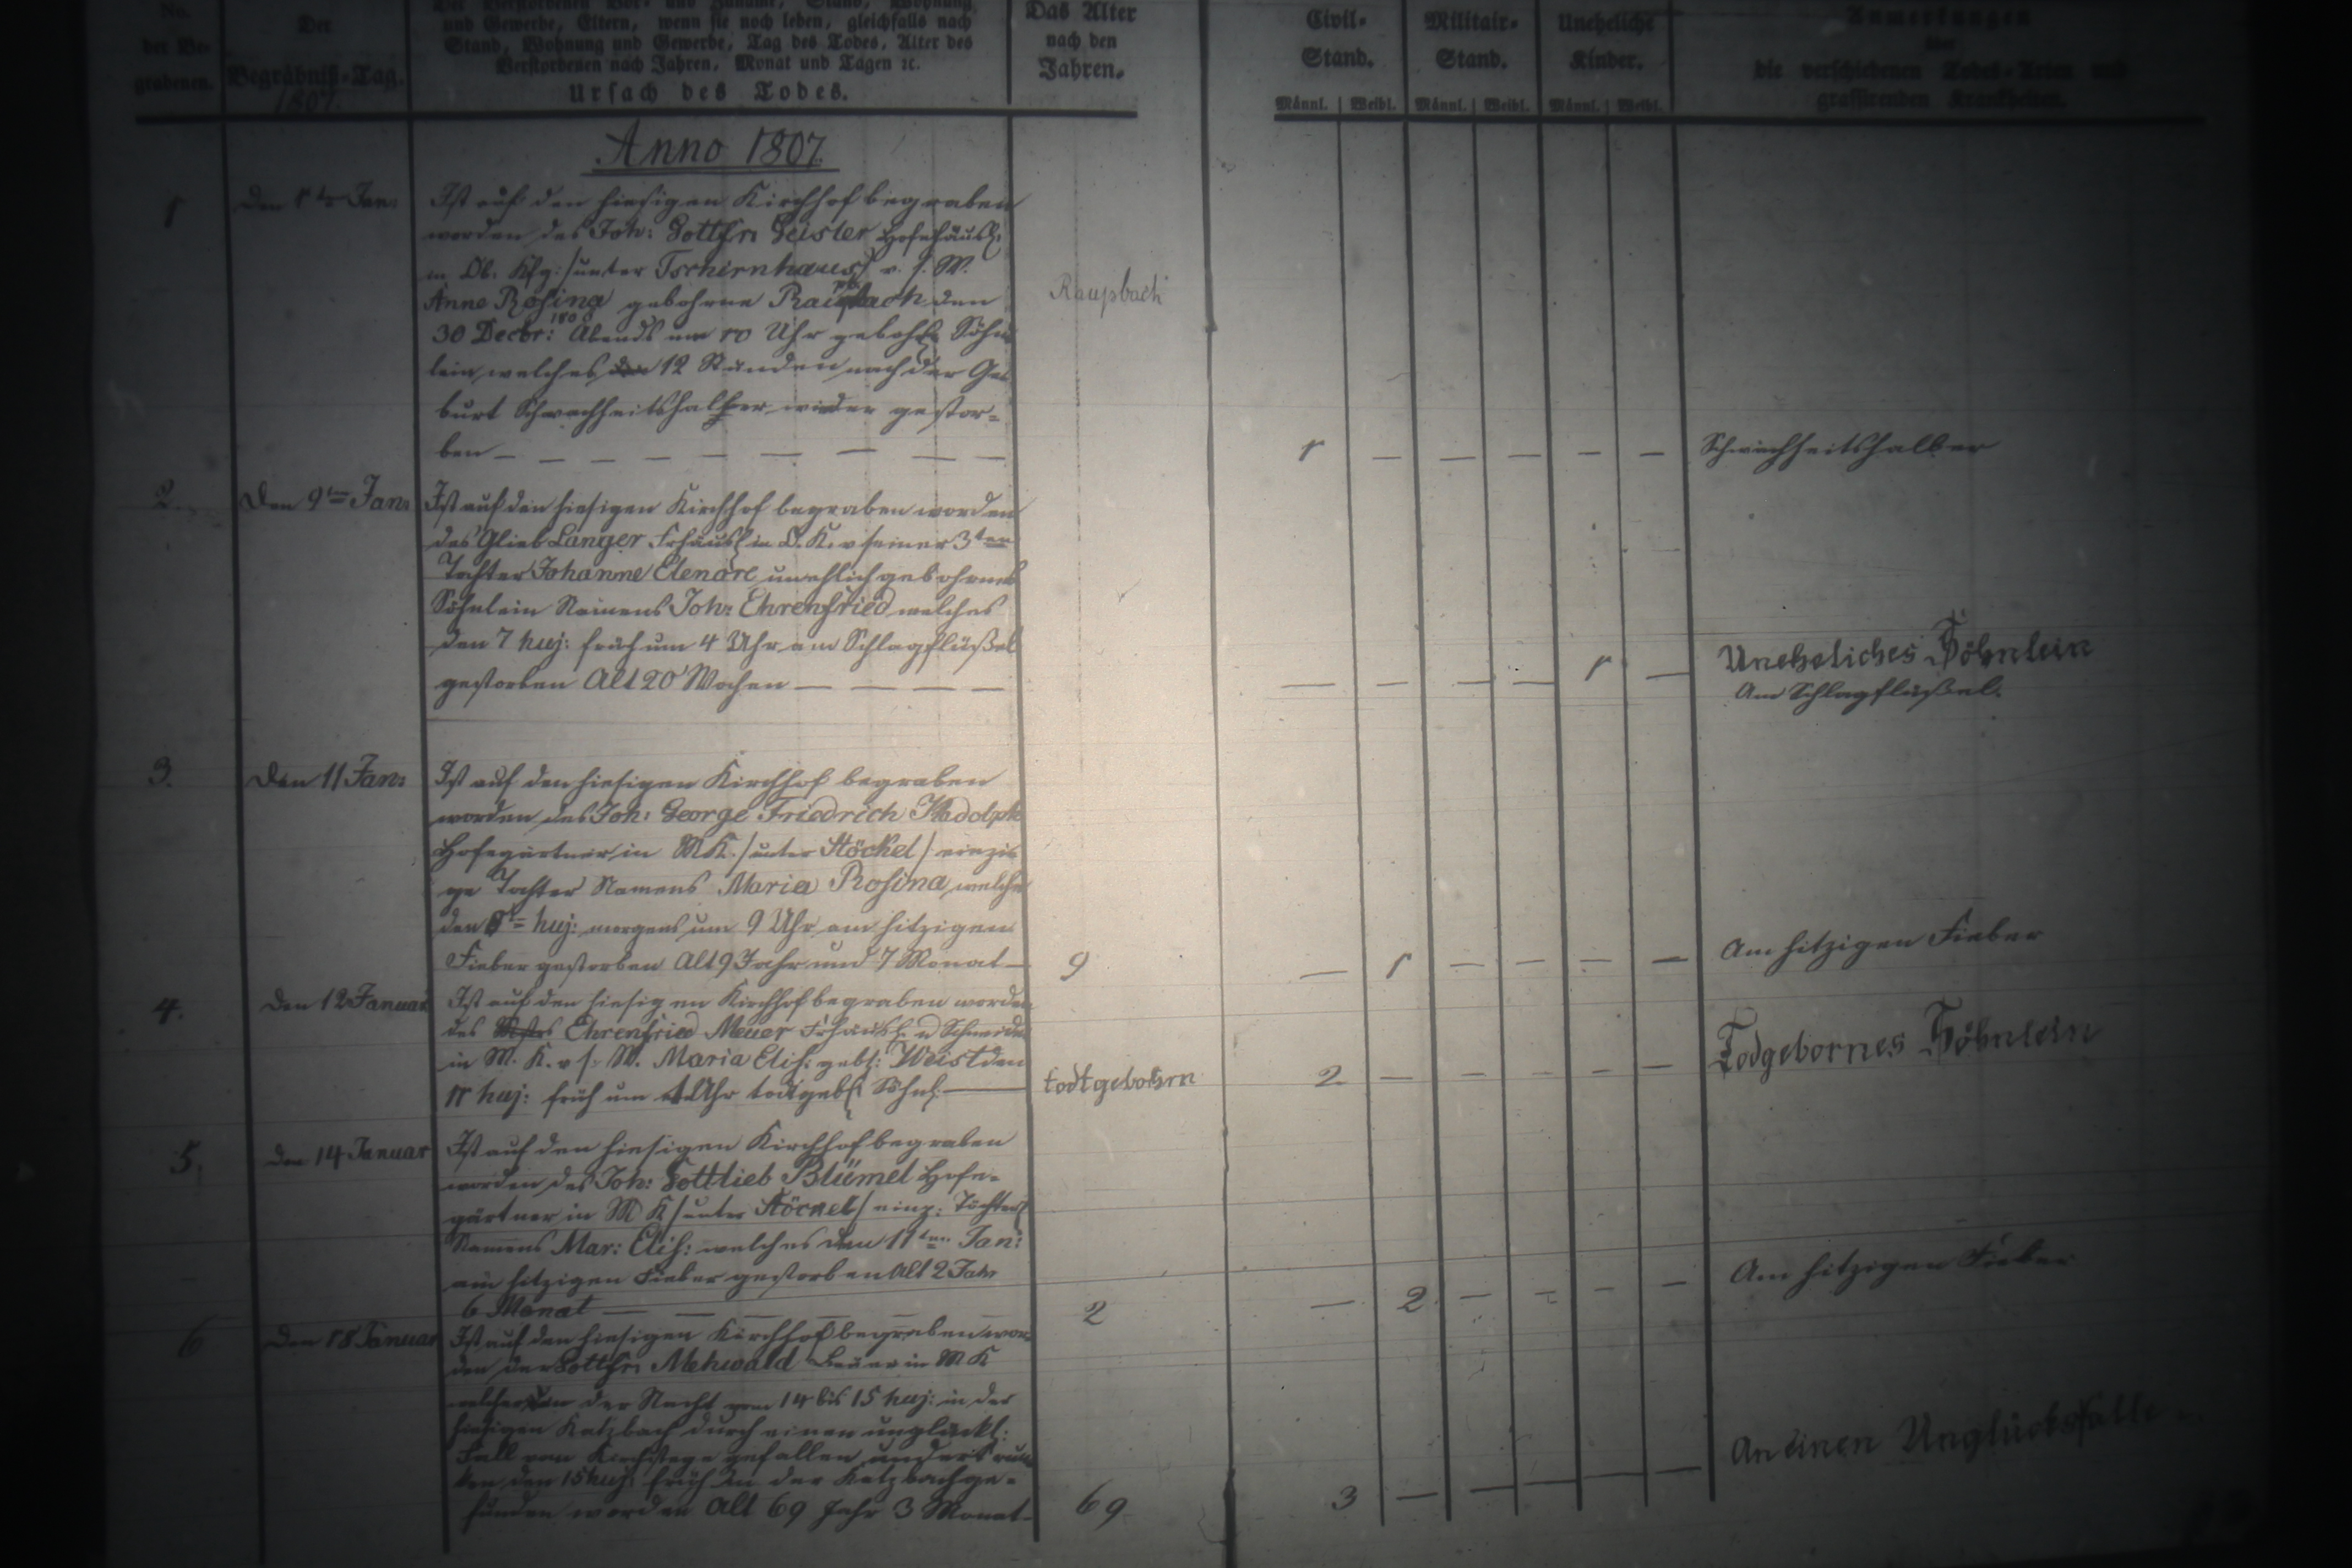 No. der Be- grabenen.
Der Begräbniß-Tag.
1807.
Der Verstorbenen Vor- und Zuname, Stand, Wohnung
und Gewerbe, Eltern, wenn sie noch leben, gleichfalls nach
Stand, Wohnung und Gewerbe, Tag des Todes, Alter des
Verstorbenen nach Jahren, Monat und Tagen ꝛc.
Ursach des Todes.
Das Alter
nach den
Jahren.
Civil-
Stand.
Militair-
Stand.
Uneheliche
Kinder.
Anmerkungen
über
die verschiedenen Todes-Arten und
grassirenden Krankheiten.
Männl. Weibl. Männl. Weibl. Männl. Weibl.
Anno 1807.
1 Den 1ten Jan:
Ist auf den hiesigen Kirchhof begraben
worden des Joh: Gottfr: Geisler Hofehäusl:
in Ob. Kfg: /unter Tschirnhaus/ v. s. W.
Anne Rosina gebohrne Raupbach den
Raupbach
30 Decbr: 1806 Abends um 10 Uhr gebohr Söhn
lein, welches 12 Stunden nach der Ge-
burt Schwachheitshalber wieder gestor-
ben — — — — — — — —
1 — — — — — Schwachheitshalber
2. Den 9ten Jan:
Ist auf den hiesigen Kirchhof begraben worden
des Glieb Langer Frhäusl in O. K. v seiner 3ten
Tochter Johanne Elenore unehlich gebohrnes
Söhnlein Namens Joh: Ehrenfried welches
den 7 huj: früh um 4 Uhr am Schlagflüßel
gestorben Alt 20 Wochen — — — —
— — — — 1 — Uneheliches Söhnlein
Am Schlagflüßel.
3. Den 11 Jan:
Ist auf den hiesigen Kirchhof begraben
worden des Joh: George Friedrich
Hofegärtner in MK. /unter Stöckel/ einzi-
ge Tochter Namens Maria Rosina, welche
den huj: morgens um 9 Uhr am hitzigen
Fieber gestorben Alt 9 Jahr und 7 Monat —
9 — 1 — — — — Am hitzigen Fieber
4. Den 12 Januar
Ist auf den hiesigen Kirchhof begraben worden
des Ehrenfried Meuer Frhäusl. u Schneider
in M. K. v s. W. Maria Elis: gebl: Weist den
11 huj: früh um Uhr todtgebl: Söhnl: —
todtgebohrn 2. — — — — — Todgebornes Söhnlein
5. Den 14 Januar
Ist auf den hiesigen Kirchhof begraben
worden des Joh: Gottlieb Blümel Hofe-
gärtner in M K /unter Stöckel/ einz: Töchterl
Namens Mar: Elis: welches den 11ten Jan:
am hitzigen Fieber gestorben Alt 2 Jahr
6 Monat — — — — —
2 — 2. — — — — Am hitzigen Fieber
6 Den 18 Januar
Ist auf den hiesigen Kirchhof begraben wor-
den der Gottfr: Mehwald Bauer in M K
welcher in der Nacht vom 14 bis 15 huj: in der
hiesigen Katzbach durch einen unglückl:
Fall vom Kirchstege gefallen und ertrun
ken den 15 huj: früh in der Katzbach ge-
funden worden Alt 69 Jahr 3 Monat —
69 3 — — — — — An einen Unglücksfalle